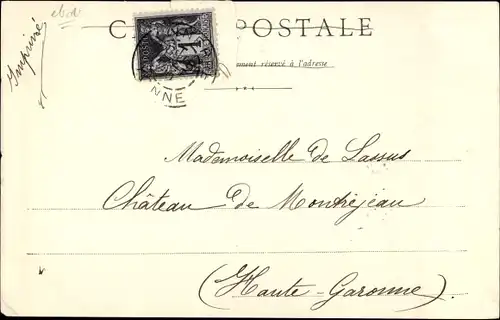 C POSTALE
Imprimé
ment réservé à l'adresse
NNE
Mademoiselle de Lassus
Château de Montréjeau
(Haute-Garonne).